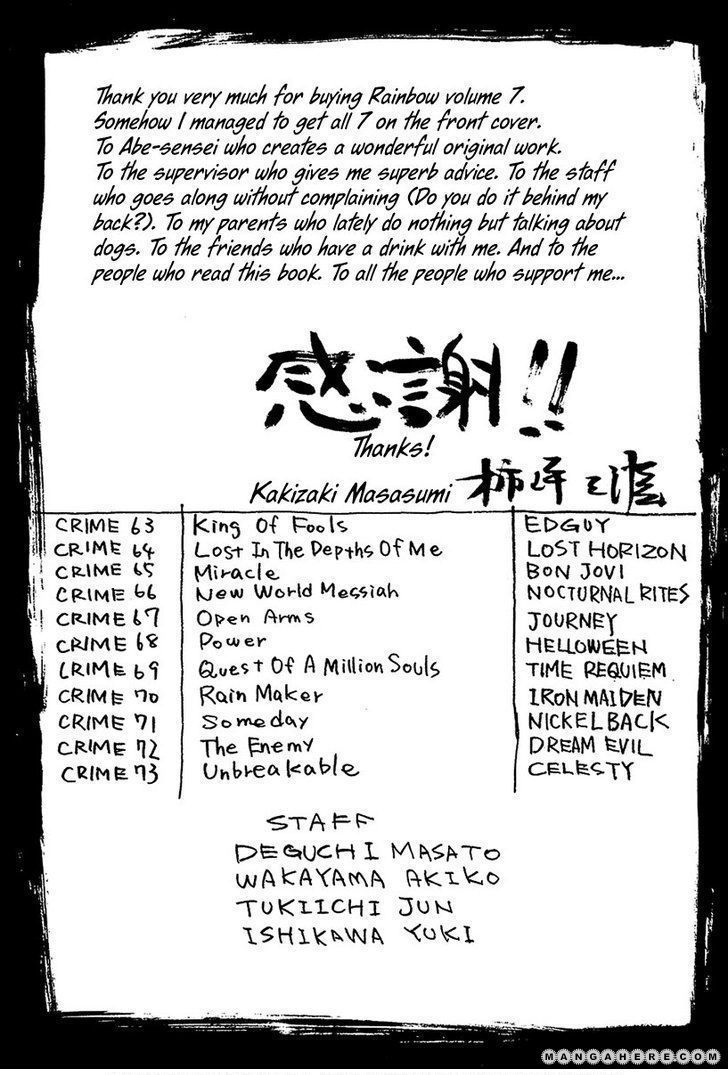 Thank you very much for buying Rainbow volume 7.
Somehow I managed to get all 7 on the front cover.
To Abe-sensei who creates a wonderful original work.
To the supervisor who gives me superb advice. To the staff
who goes along without complaining (Do you do it behind my
back?). To my parents who lately do nothing but talking about
dogs. To the friends who have a drink with me. And to the
people who read this book. To all the people who support me...
感謝!!
Thanks!
Kakizaki Masasumi 柿崎正澄
CRIME 63 King Of Fools EDGUY
CRIME 64 Lost In The Depths Of Me LOST HORIZON
CRIME 65 Miracle BON JOVI
CRIME 66 New World Messiah NOCTURNAL RITES
CRIME 67 Open Arms JOURNEY
CRIME 68 Power HELLOWEEN
CRIME 69 Quest Of A Million Souls TIME REQUIEM
CRIME 70 Rain Maker IRON MAIDEN
CRIME 71 Someday NICKELBACK
CRIME 72 The Enemy DREAM EVIL
CRIME 73 Unbreakable CELESTY
STAFF
DEGUCHI MASATO
WAKAYAMA AKIKO
TUKIICHI JUN
ISHIKAWA YUKI
MANGAHERE.COM